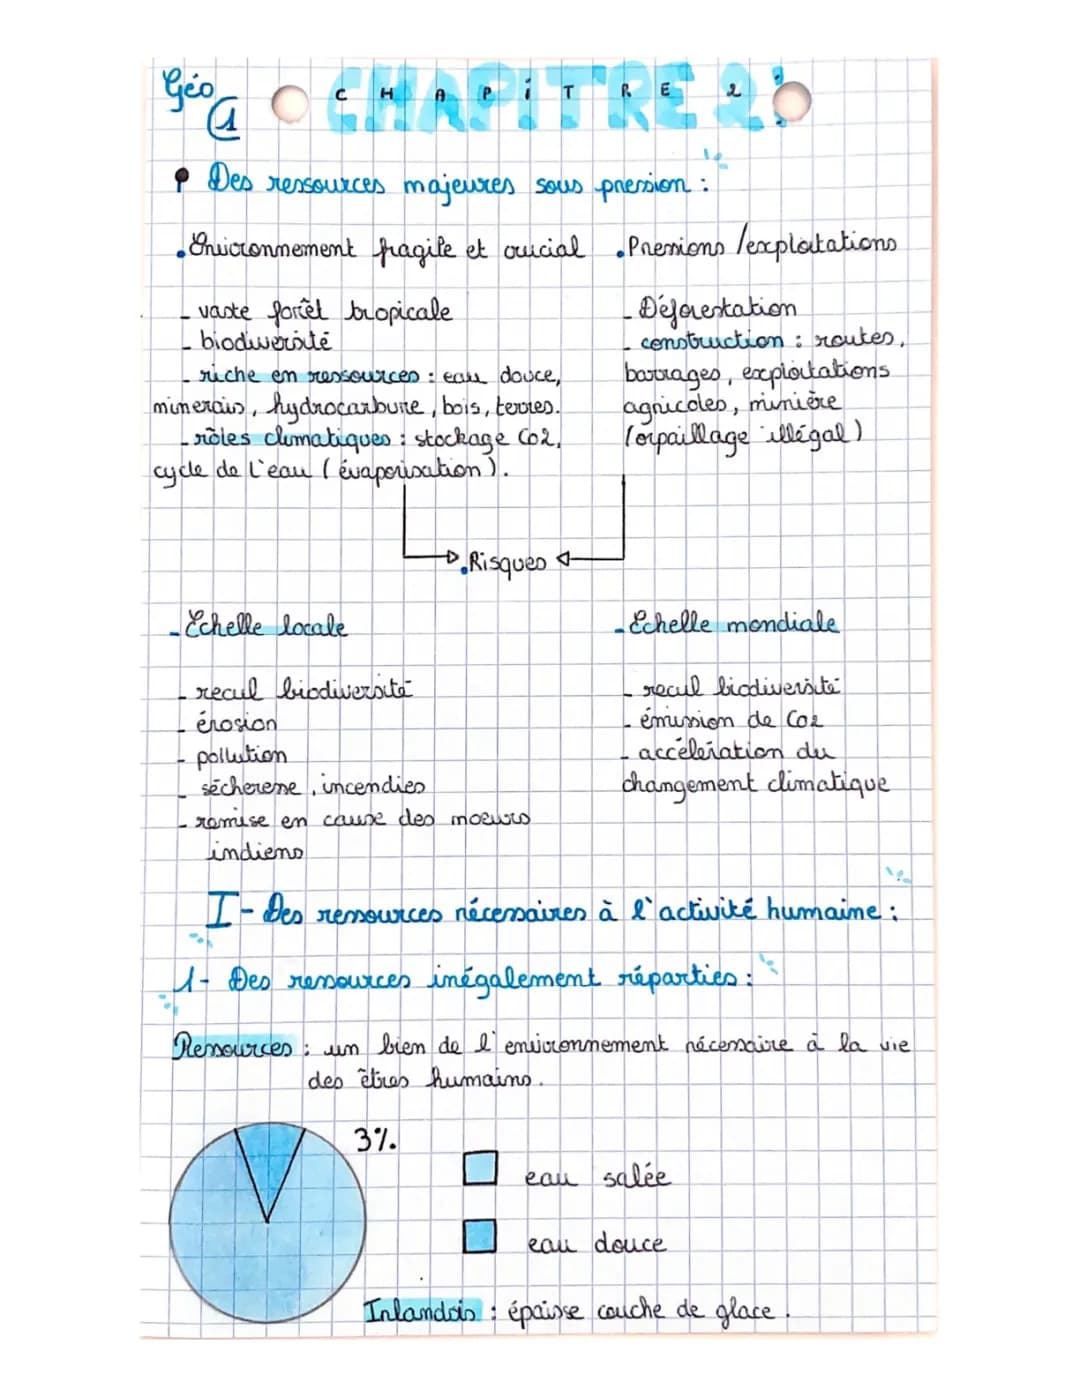 Géo
1
CHAPITRE 2:
Des ressources majeures sous pression :
. Environnement fragile et crucial
- vaste forêt tropicale
- biodiversité
- riche en ressources : eau douce,
minerais, hydrocarbure, bois, terres.
- rôles climatiques : stockage Co2,
cycle de l'eau (évaporisation).
. Pressions / exploitations
- Déforestation
- construction : routes,
barrages, exploitations
agricoles, minière
(orpaillage illégal)
. Risques
- Echelle locale
- recul biodiversité
- érosion
- pollution
- sécheresse, incendies
- remise en cause des moeurs
indiens
- Echelle mondiale
- recul biodiversité
- émission de Co2
- accéleration du
changement climatique
I - Des ressources nécessaires à l'activité humaine :
1 - Des ressources inégalement réparties :
Ressources : un bien de l'environnement nécessaire à la vie
des êtres humains.
3%
eau salée
eau douce
Inlandsis : épaisse couche de glace.